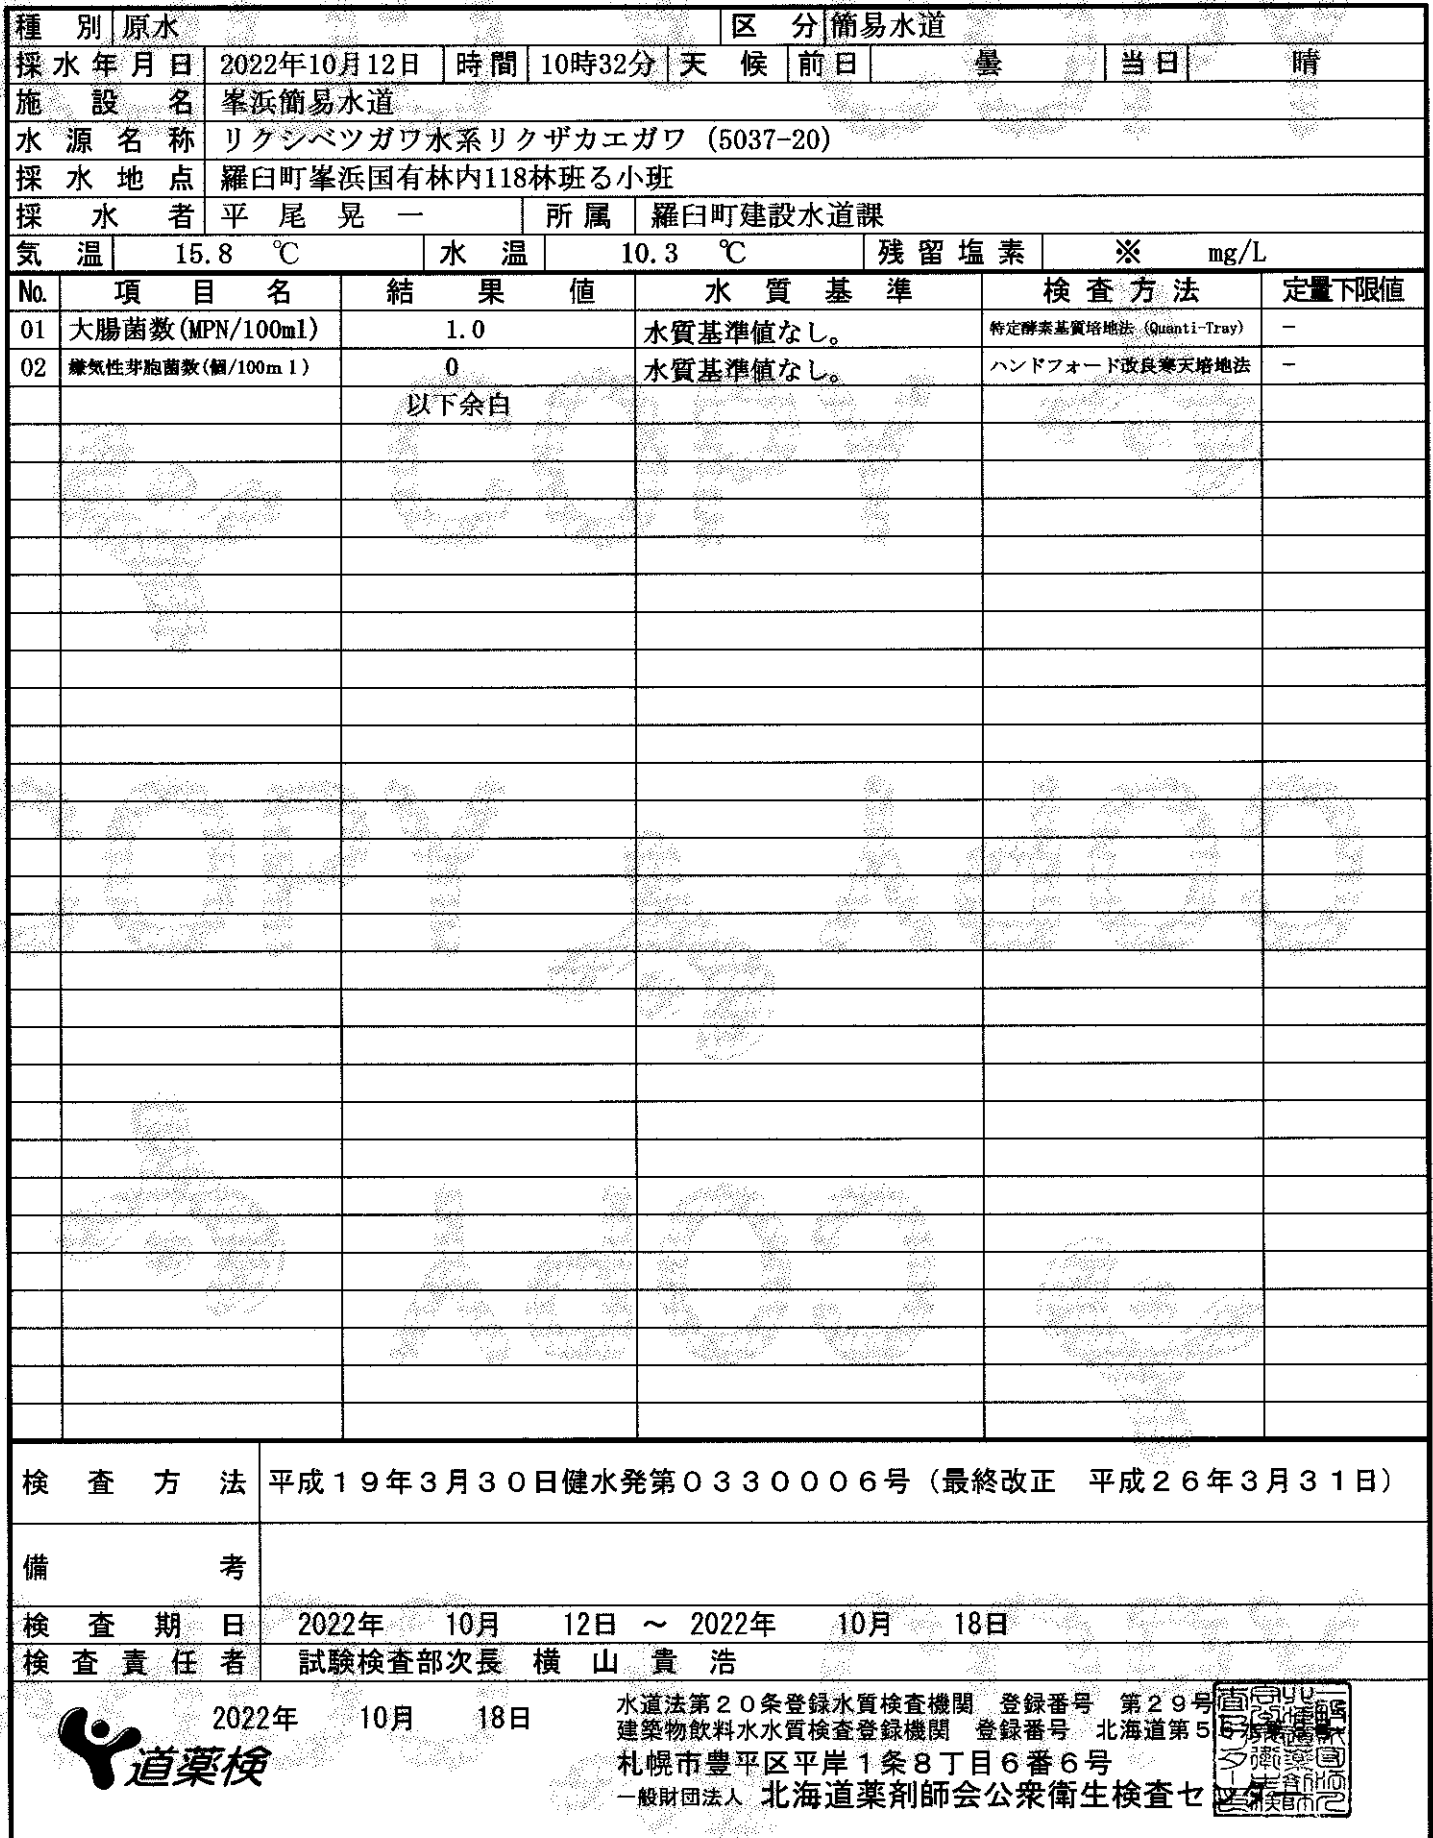 種別 原水 区分 簡易水道
採水年月日 2022年10月12日 時間 10時32分 天候 前日 曇 当日 晴
施設名 峯浜簡易水道
水源名称 リクシベツガワ水系リクザカエガワ (5037-20)
採水地点 羅臼町峯浜国有林内118林班る小班
採水者 平尾晃一 所属 羅臼町建設水道課
気温 15.8 ℃ 水温 10.3 ℃ 残留塩素 ※ mg/L
No. 項目名 結果値 水質基準 検査方法 定量下限値
01 大腸菌数(MPN/100ml) 1.0 水質基準値なし。 特定酵素基質培地法 (Quanti-Tray) －
02 嫌気性芽胞菌数(個/100ml) 0 水質基準値なし。 ハンドフォード改良寒天培地法 －
以下余白
COPY
COPY COPY
COPY
検査方法 平成１９年３月３０日健水発第０３３０００６号（最終改正 平成２６年３月３１日）
備考
検査期日 2022年 10月 12日 ～ 2022年 10月 18日
検査責任者 試験検査部次長 横山貴浩
道薬検 2022年 10月 18日
水道法第２０条登録水質検査機関 登録番号 第２９号
建築物飲料水水質検査登録機関 登録番号 北海道第５６
札幌市豊平区平岸１条８丁目６番６号
一般財団法人 北海道薬剤師会公衆衛生検査セ